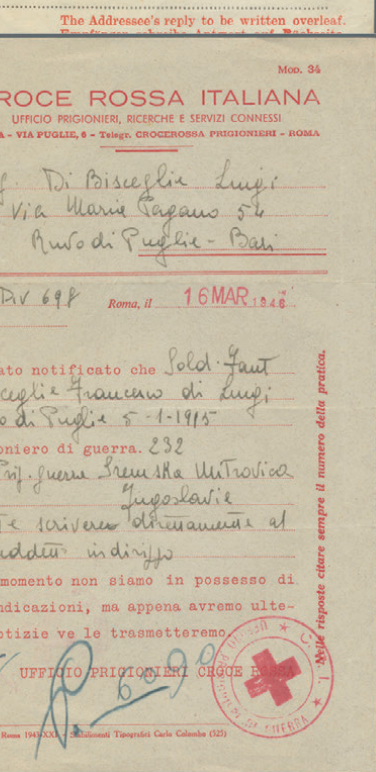 The Addressee's reply to be written overleaf.
MOD. 34
ROCE ROSSA ITALIANA
UFFICIO PRIGIONIERI, RICERCHE E SERVIZI CONNESSI
A - VIA PUGLIE, 6 - Telegr. CROCEROSSA PRIGIONIERI - ROMA
Di Bisceglie Luigi
Via Mario Pagano 54
Ruvo di Puglie - Bari
Div 698 Roma, il 16 MAR 1946
ato notificato che Sold. Fant
sceglie Francesco di Luigi
o di Puglie 5-1-1915
oniero di guerra. 232
Prig. guerra Sremska Mitrovica
Jugoslavia
te scrivere direttamente al
uddetto indirizzo
momento non siamo in possesso di
ndicazioni, ma appena avremo ulte-
otizie ve le trasmetteremo.
UFFICIO PRIGIONIERI CROCE ROSSA
Roma 1943-XXI - Stabilimenti Tipografici Carlo Colombo (525)
Nelle risposte citare sempre il numero della pratica.